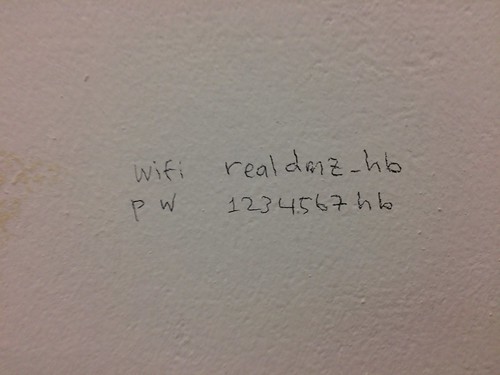 wifi realdmz_hb
pw 1234567hb